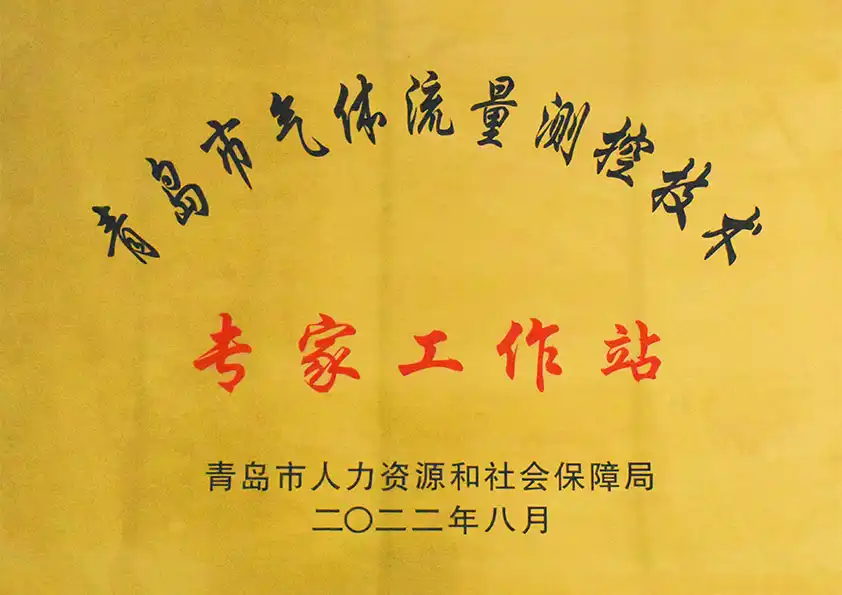 青岛市气体流量测控技术
专家工作站
青岛市人力资源和社会保障局
二〇二二年八月